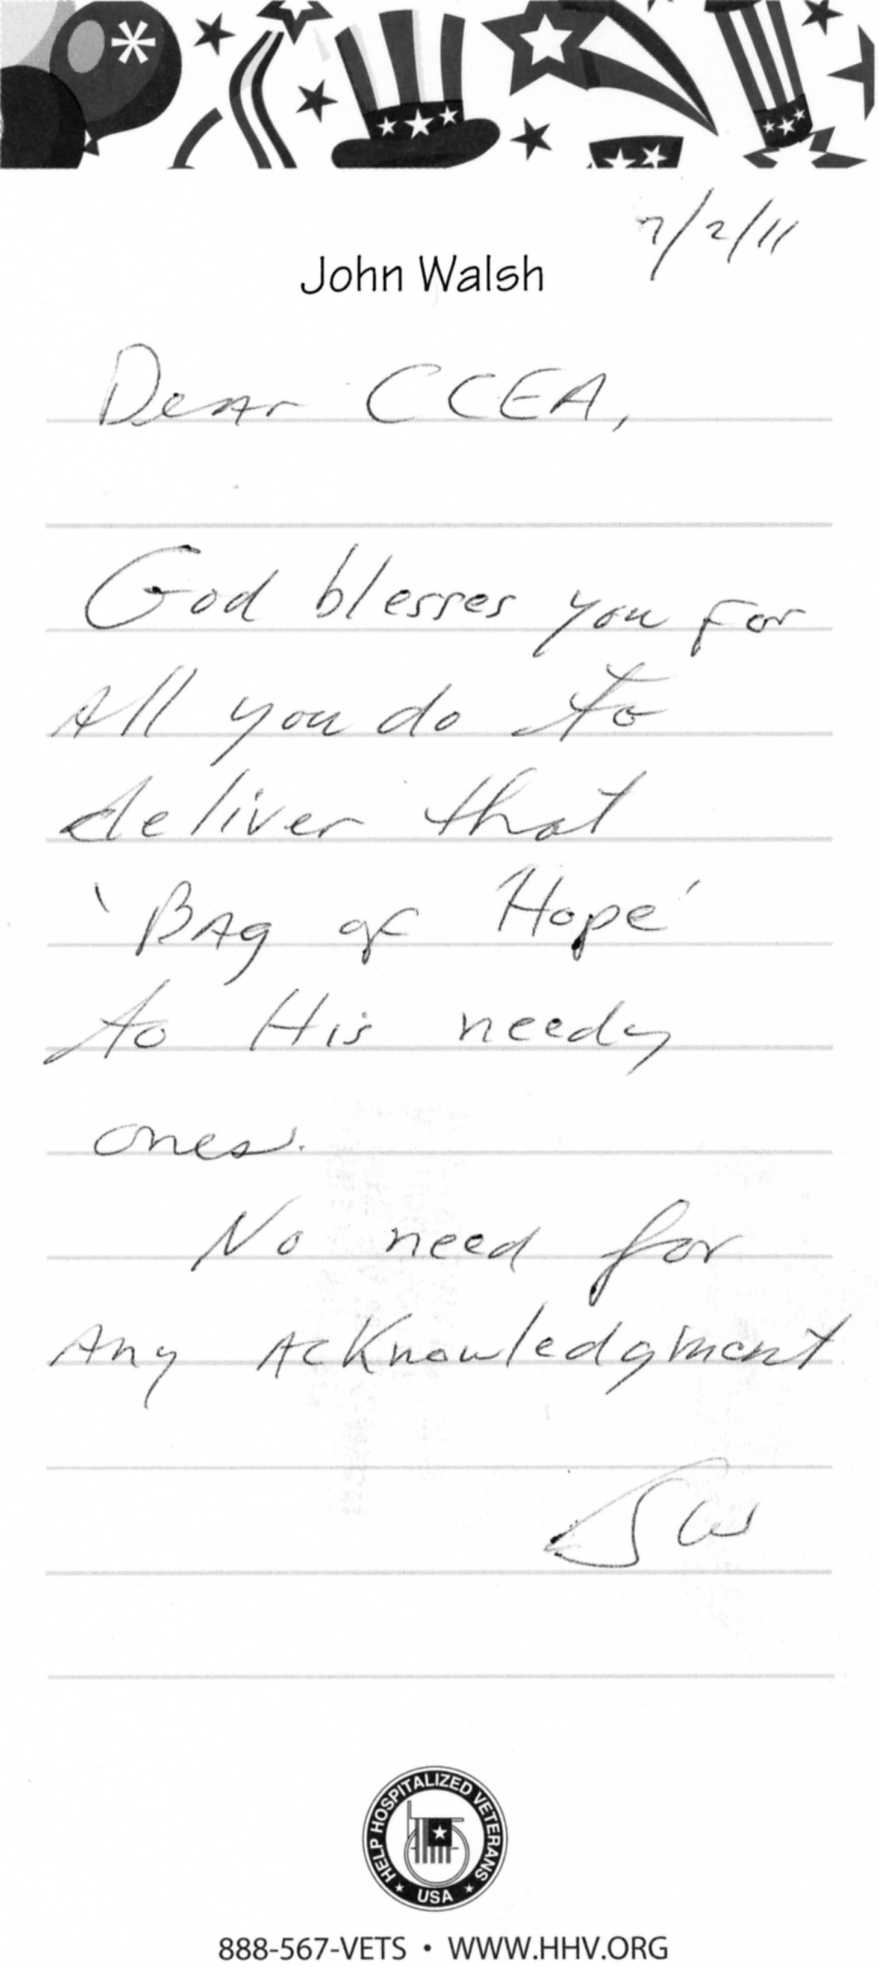 7/2/11
John Walsh
Dear CCEA,
God blesses you for
All you do to
deliver that
'BAg of Hope'
to His needy
ones.
No need for
Any AcKnowledgment
JW
HELP HOSPITALIZED VETERANS
USA
888-567-VETS • WWW.HHV.ORG